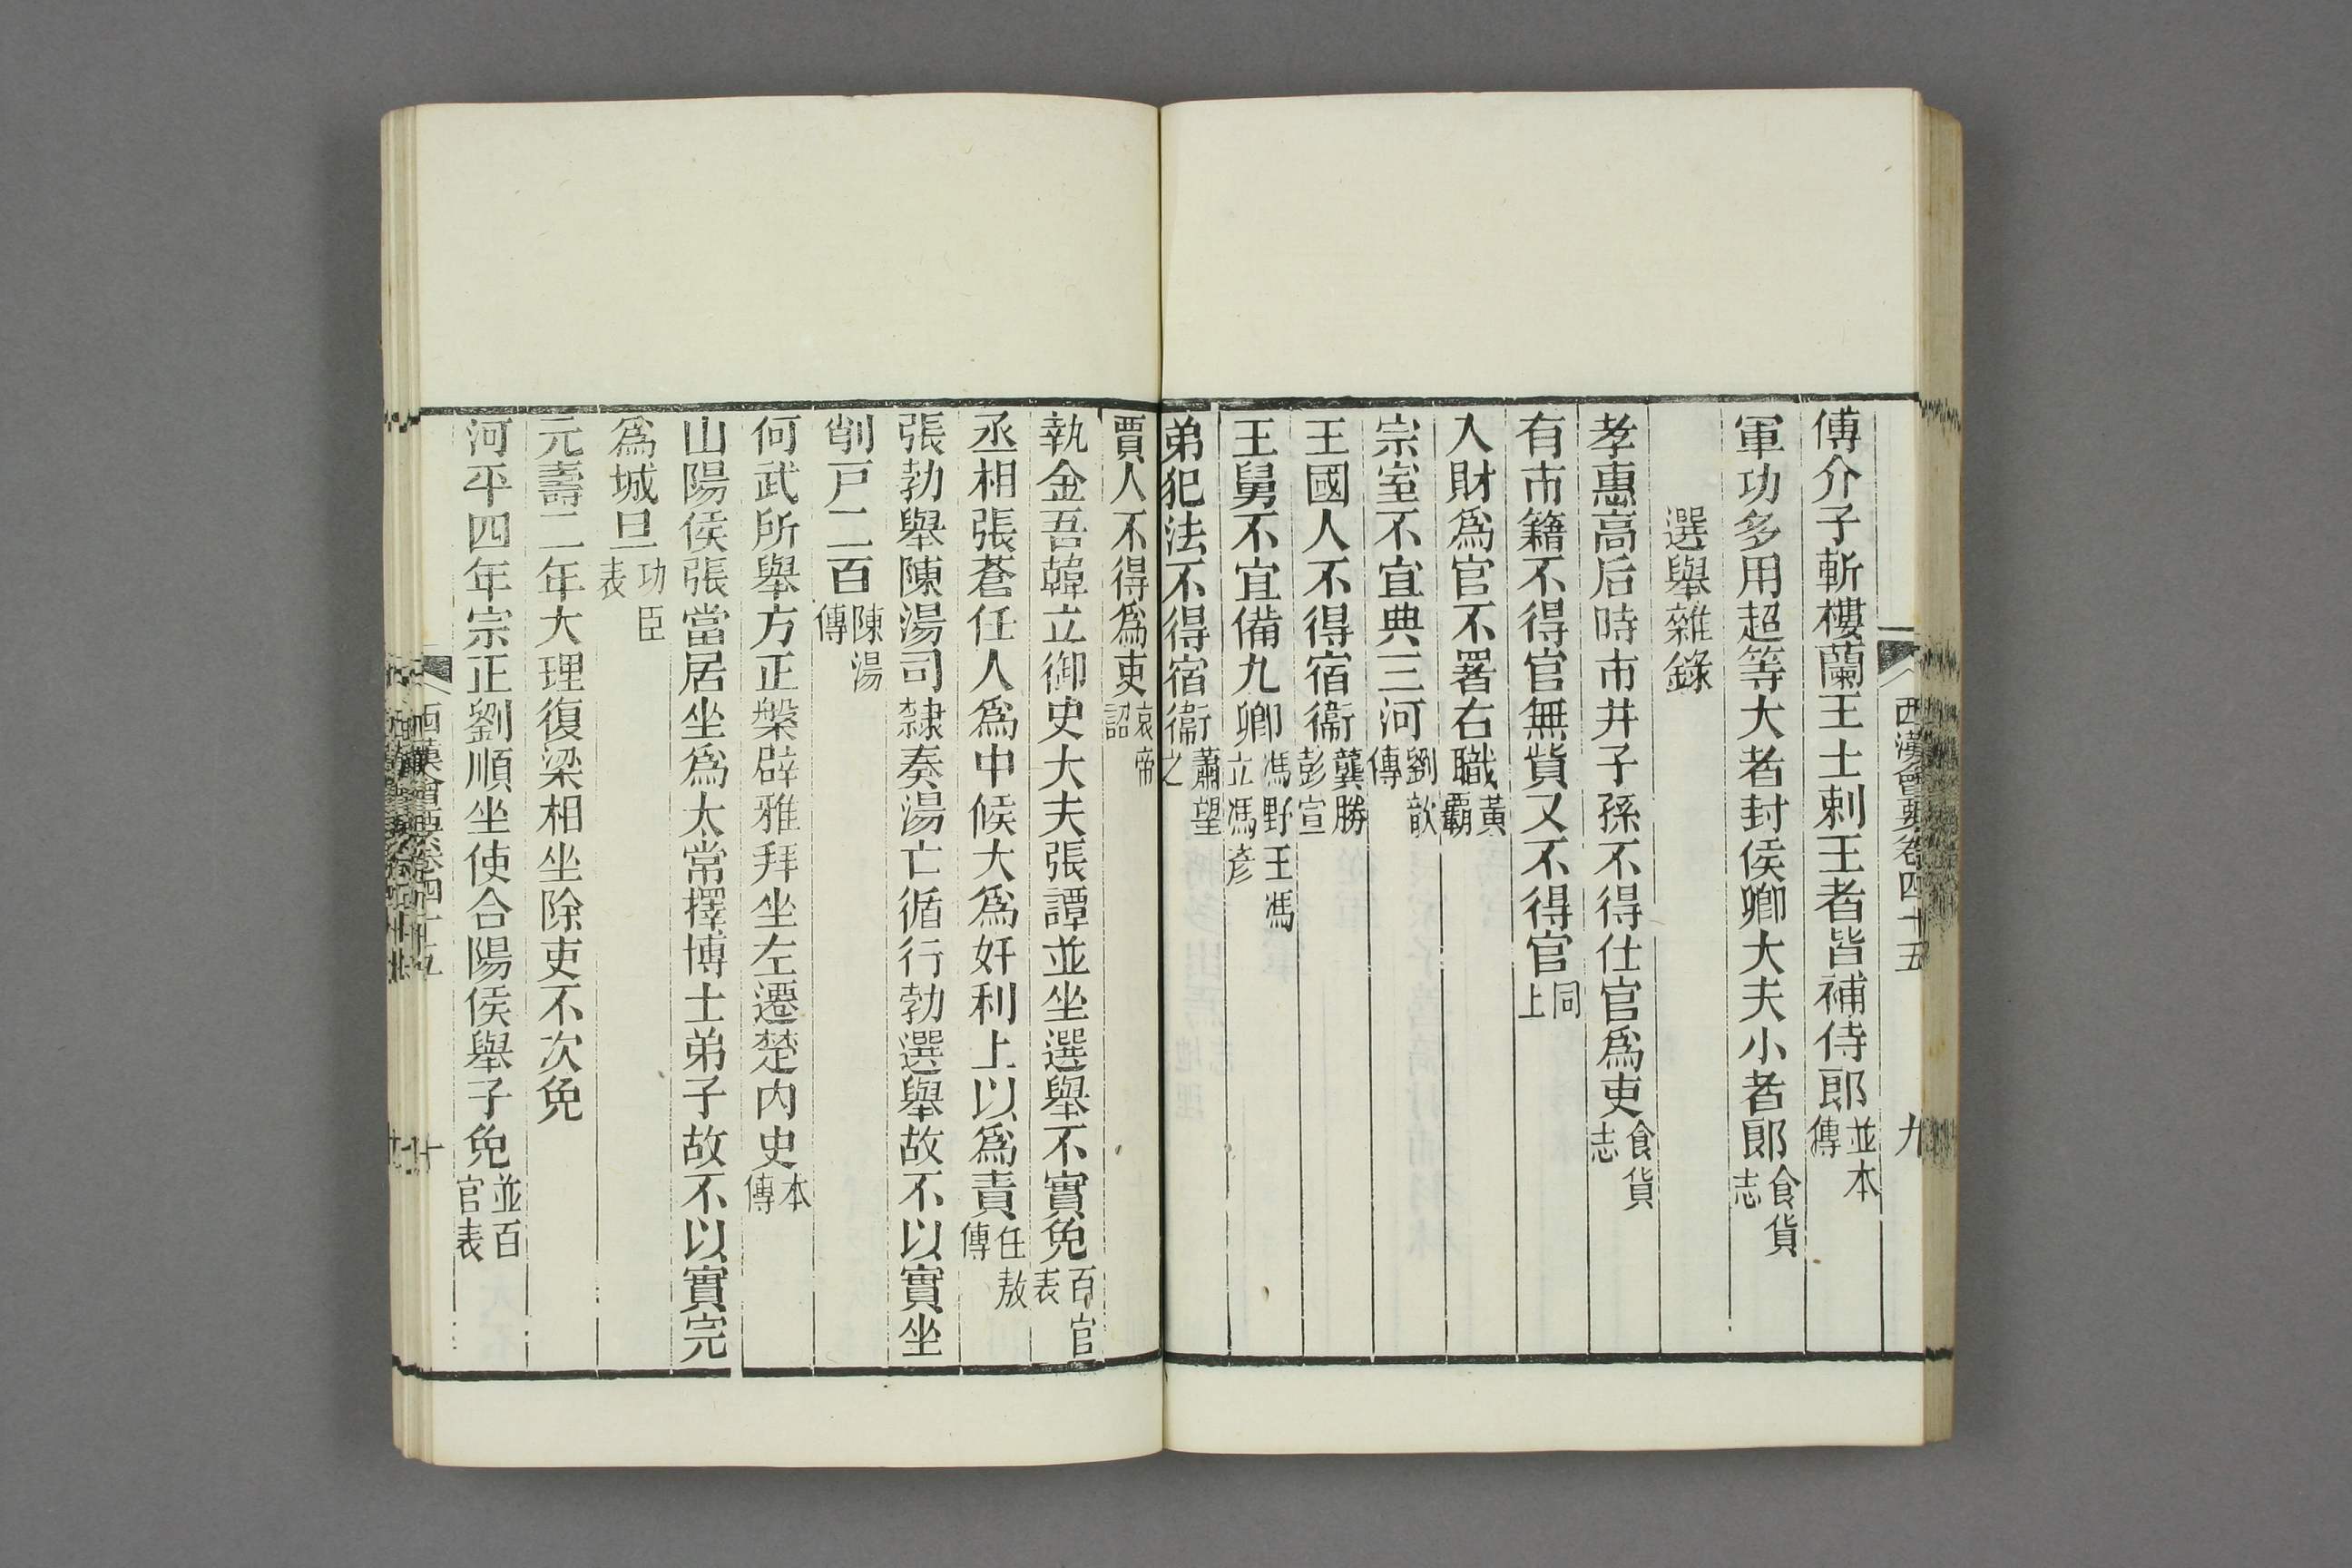 西漢會要卷四十五　九
傅介子斬樓蘭王士刺王者皆補侍郎並本傳
軍功多用超等大者封侯卿大夫小者郎食貨志
選舉雜錄
孝惠高后時市井子孫不得仕官爲吏食貨志
有市籍不得官無貲又不得官同上
入財爲官不署右職黃霸
宗室不宜典三河劉歆傳
王國人不得宿衞龔勝彭宣
王舅不宜備九卿馮野王馮立馮彥
弟犯法不得宿衞蕭望之
賈人不得爲吏哀帝詔
執金吾韓立御史大夫張譚並坐選舉不實免百官表
丞相張蒼任人爲中候大爲奸利上以爲責任敖傳
張勃舉陳湯司隸奏湯亡循行勃選舉故不以實坐
削戸二百陳湯傳
何武所舉方正槃辟雅拜坐左遷楚内史本傳
山陽侯張當居坐爲太常擇博士弟子故不以實完
爲城旦功臣表
元壽二年大理復梁相坐除吏不次免
河平四年宗正劉順坐使合陽侯舉子免並百官表
西漢會要卷四十五　十